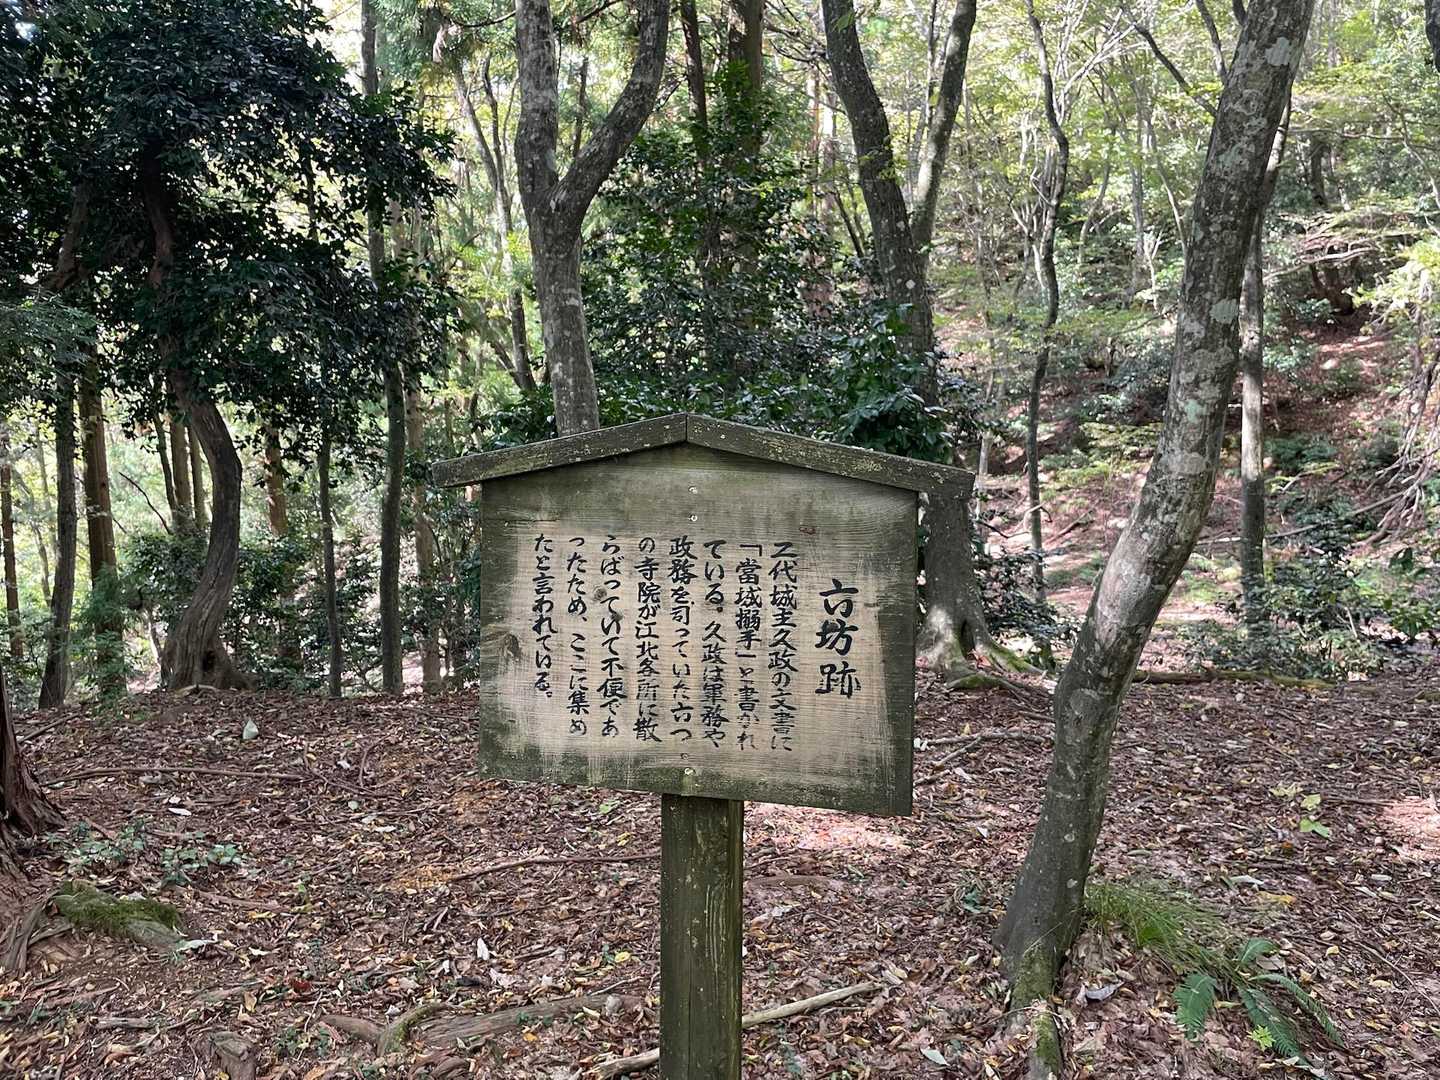 六坊跡
二代城主久政の文書に
「當城搦手」と書かれ
ている。久政は軍務や、
政務を司っていた六つ
の寺院が江北各所に散
らばっていて不便であ
ったため、ここに集め
たと言われている。